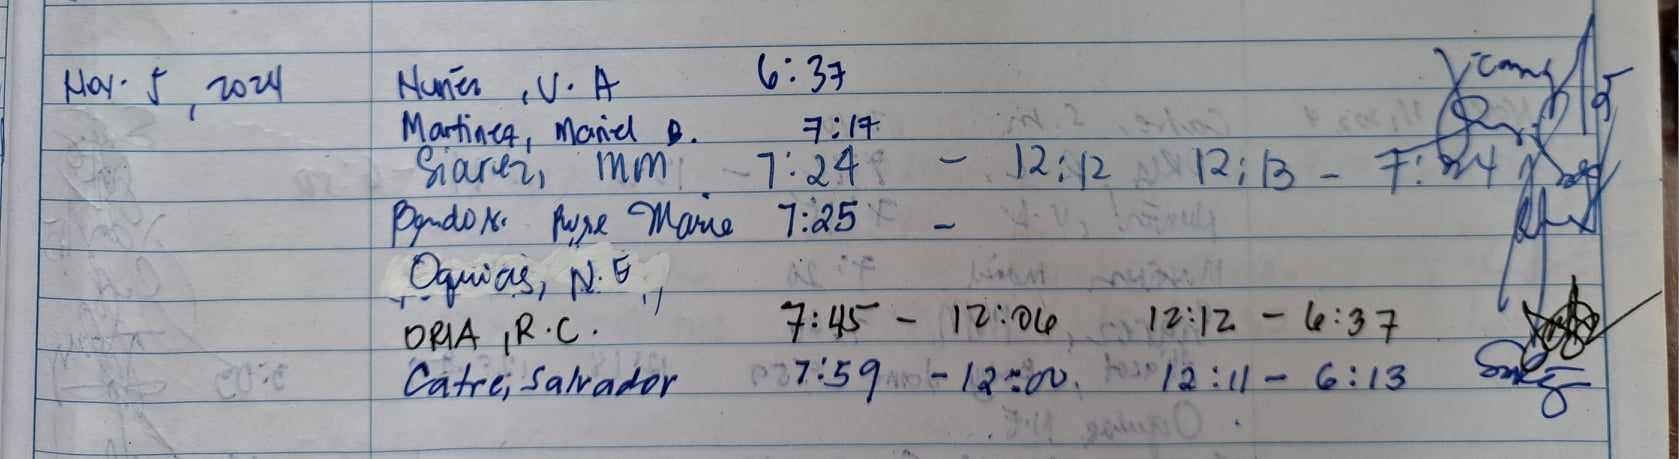 Nov. 5, 2024 Nuñez, V. A 6:37
Martinez, Mariel D. 7:17
Siarez, MM 7:24 - 12:12 12:13 - 7:24
Rose Marie 7:25 -
Oquias, N.E.
ORIA, R.C. 7:45 - 12:06 12:12 - 6:37
Catre, Salvador 7:59 - 12:00 12:11 - 6:13